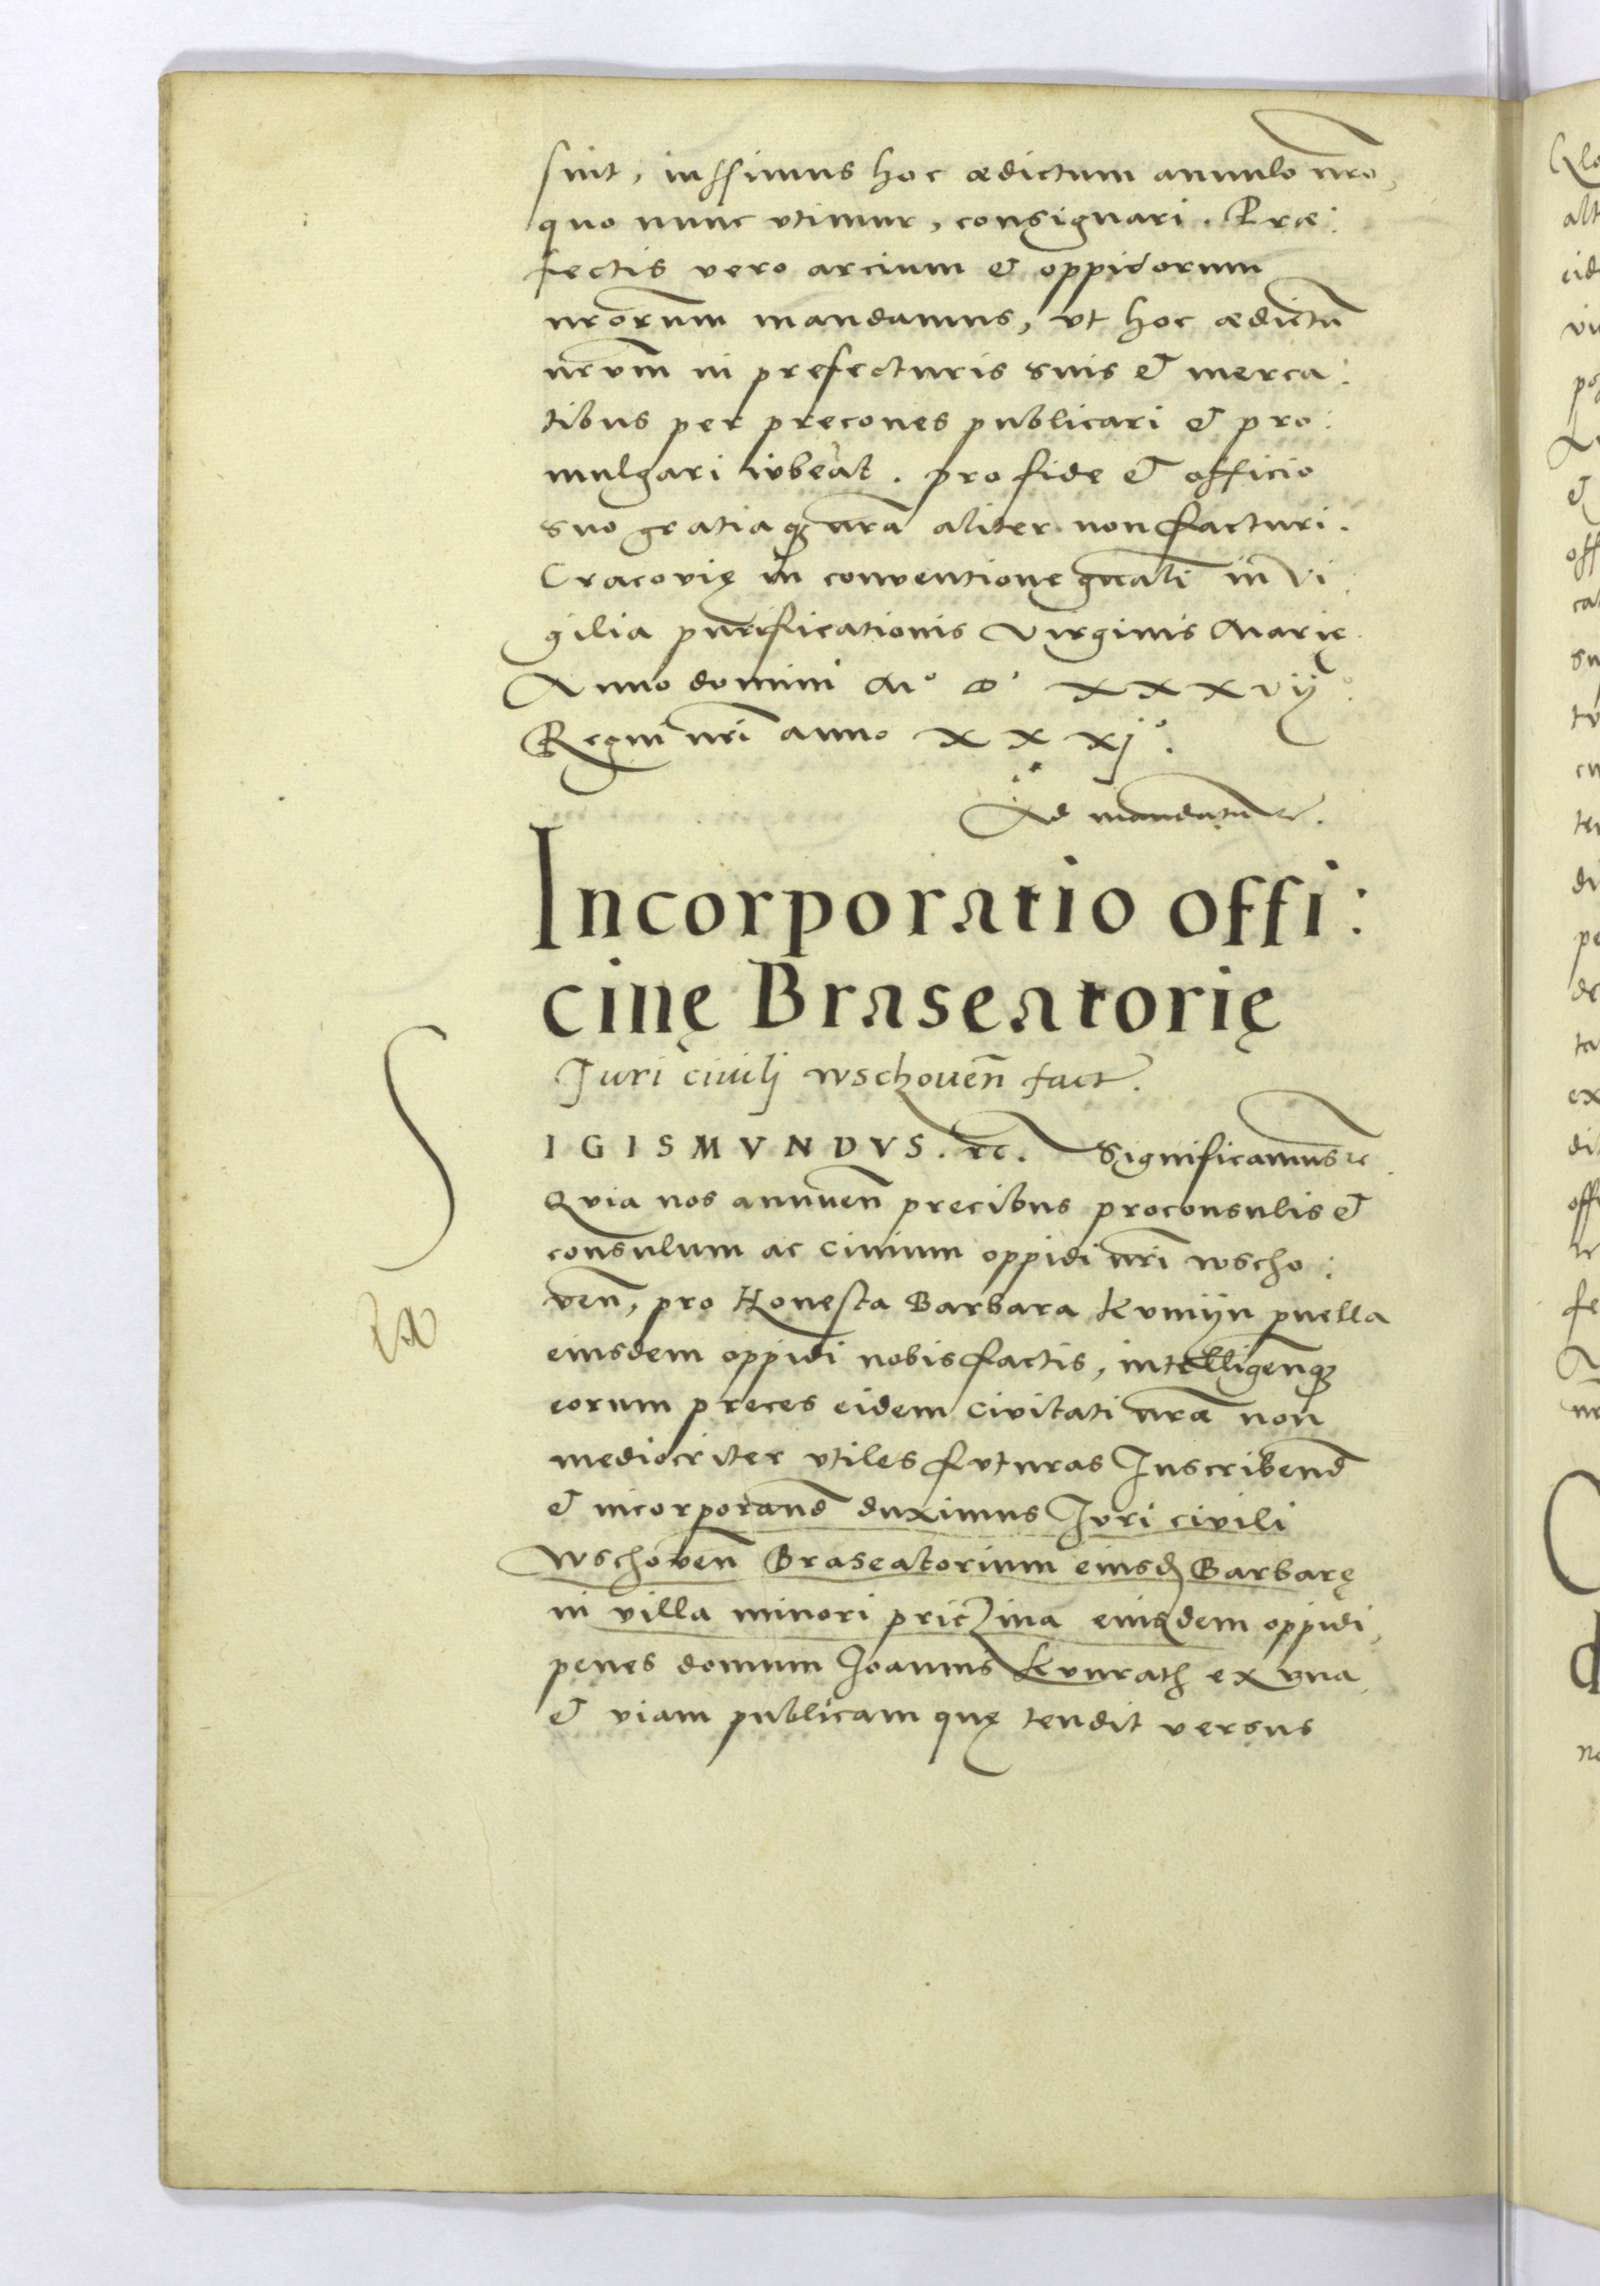 sint, iussimus hoc ædictum annulo nro,
quo nunc vtimur, consignari. Præ:
fectis vero arcium & oppidorum
nrorum mandamus, vt hoc ædictū
nrvm in prefecturis suis & merca:
tibus per precones publicari & pro:
mulgari ivbeāt. pro fide & officio
suo gratiaq; nrā aliter non facturi.
Cracovię in conventione gnali in vi:
gilia purificationis Virginis Marię.
Anno domini Mº Dº XXXVijº.
Regni nri anno XXXjº.
Ad mandatū &c.
Incorporatio offi:
cinę Braseatorię
Iuri civilj wschoven fact.
SIGISMVNDVS. &c. Significamus &c.
Qvia nos annuen precibus proconsulis &
consulum ac civium oppidi nri wscho:
ven, pro Honesta Barbara Kvmijn puella
eiusdem oppidi nobis factis, intelligenq;
eorum preces eidem civitati nræ non
mediocriter vtiles fvturas Inscribend
& incorporand duximus Ivri civili
Wschoven Braseatorium eiusd Barbarę
in villa minori priczina eiusdem oppidi,
penes domum Joannis Kvnrath ex vna
& viam publicam quę tendit versus